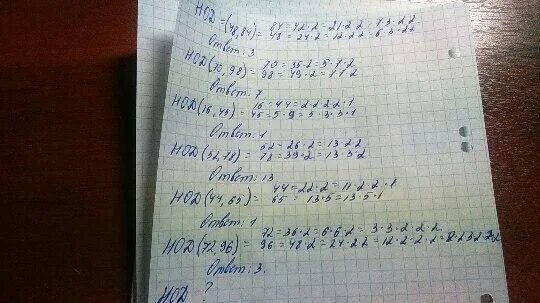 НОД (48,84) = 84 = 42·2 = 21·2·2 = 7·3·2·2
48 = 24·2 = 12·2·2 = 6·
Ответ: 3
НОД (70,98) = 70 = 35·2 = 5·7·2
98 = 49·2 = 7·7·2
Ответ: 7
НОД (16,45) = 16 = 4·4 = 2·2·2·2·1
45 = 5·9 = 5·3·3·1
Ответ: 1
НОД (52,78) = 52 = 26·2 = 13·2·2
78 = 39·2 = 13·3·2
Ответ: 13
НОД (44,65) = 44 = 22·2 = 11·2·2·1
65 = 13·5 = 13·5·1
Ответ: 1
НОД (72,96) = 72 = 36·2 = 6·6·2 = 3·3·2·2·2
96 = 48·2 = 24·2·2 = 12·2·2·2 =
Ответ: 3.
НОД ?